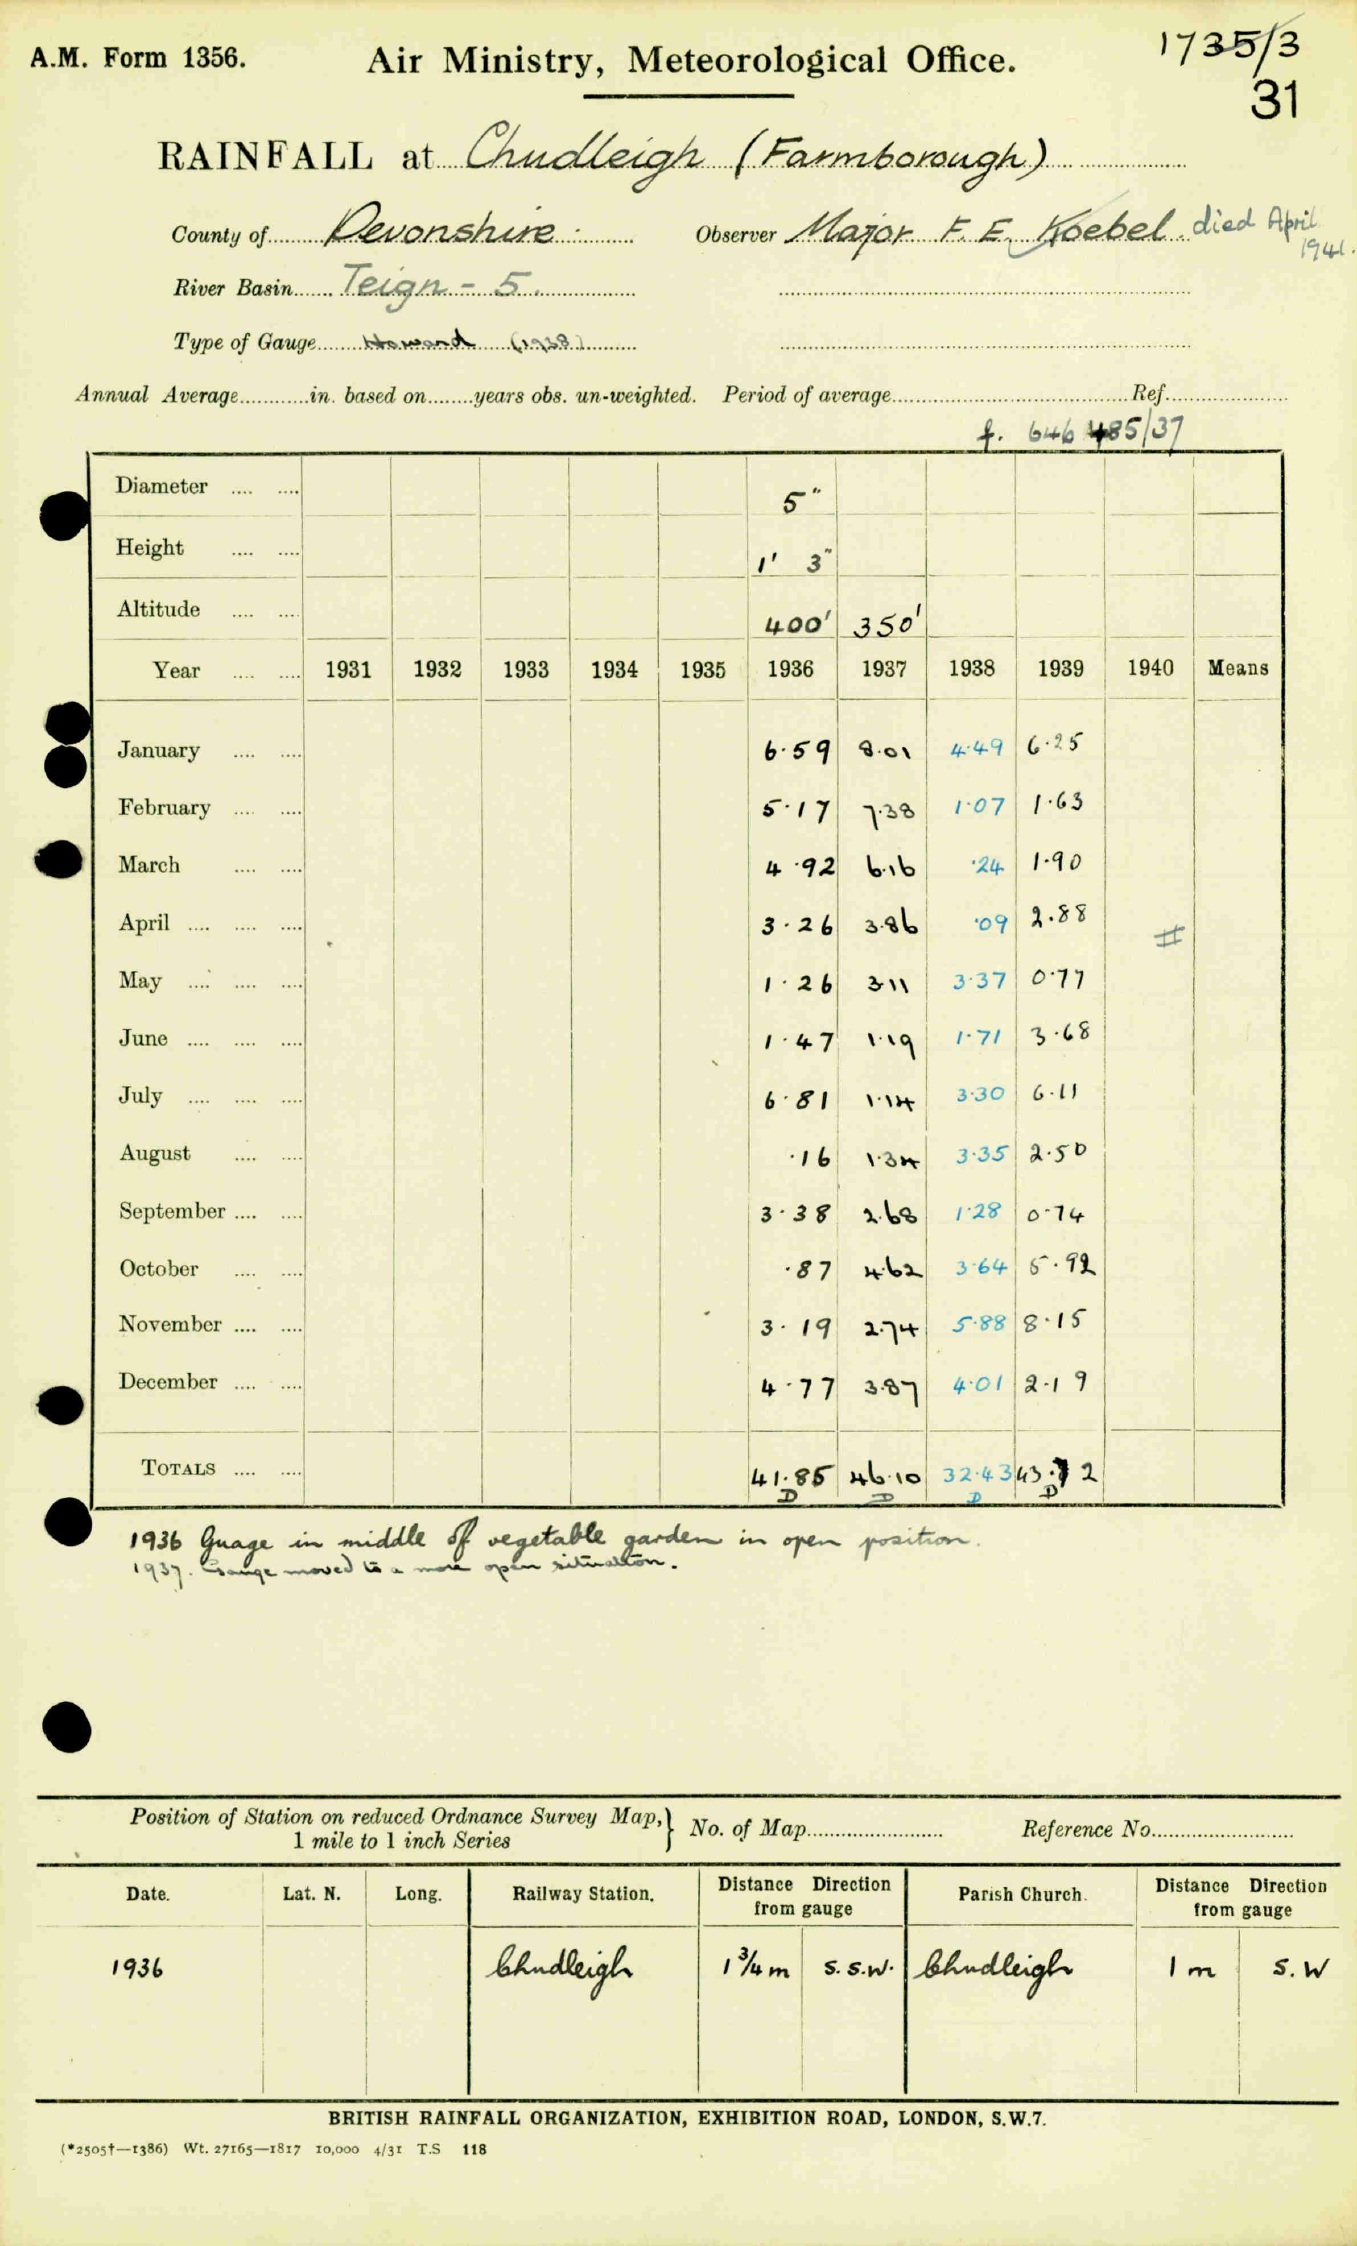 A.M. Form 1356.
Air Ministry, Meteorological Office.
1735/3
31
RAINFALL at Chudleigh (Farmborough)
County of Devonshire Observer Major F. E. Koebel. died April
1941.
River Basin Teign - 5.
Type of Gauge Howard (1938)
Annual Average in. based on years obs. un-weighted. Period of average Ref.
f. 646 485/37
Diameter 5"
Height 1' 3"
Altitude 400' 350'
Year 1931 1932 1933 1934 1935 1936 1937 1938 1939 1940 Means
January 6.59 8.01 4.49 6.25
February 5.17 7.38 1.07 1.63
March 4.92 6.16 .24 1.90
April 3.26 3.86 .09 2.88 #
May 1.26 3.11 3.37 0.77
June 1.47 1.19 1.71 3.68
July 6.81 1.14 3.30 6.11
August .16 1.34 3.35 2.50
September 3.38 2.68 1.28 0.74
October .87 4.62 3.64 5.92
November 3.19 2.74 5.88 8.15
December 4.77 3.87 4.01 2.19
TOTALS 41.85 46.10 32.43 43.72
D D D D
1936 Guage in middle of vegetable garden in open position.
1937. Gauge moved to a more open situation.
Position of Station on reduced Ordnance Survey Map, } No. of Map Reference No.
1 mile to 1 inch Series
Date. Lat. N. Long. Railway Station. Distance Direction from gauge Parish Church. Distance Direction from gauge
1936 Chudleigh 1 3/4 m S.S.W. Chudleigh 1 m S.W
BRITISH RAINFALL ORGANIZATION, EXHIBITION ROAD, LONDON, S.W.7.
(*2505†—1386) Wt. 27165—1817 10,000 4/31 T.S 118